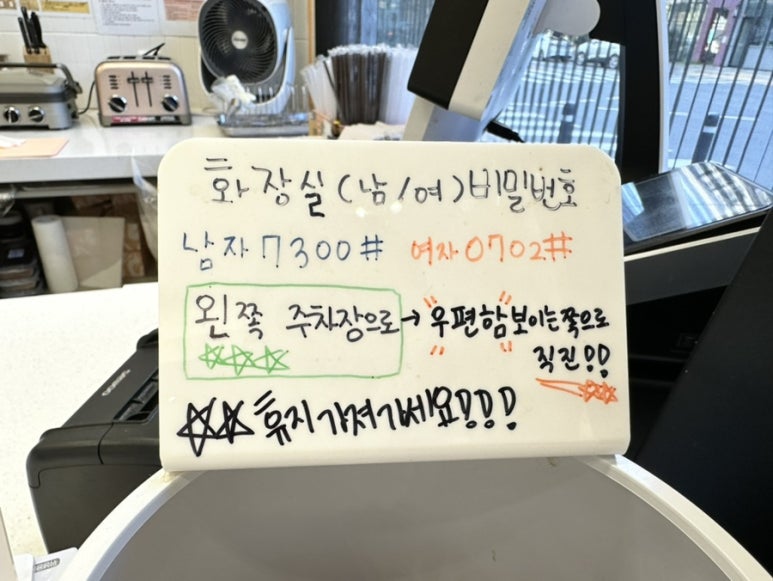 화장실(남/여)비밀번호
남자7300# 여자0702#
왼쪽 주차장으로→"우편함"보이는쪽으로
직진!!
휴지가져가세요!!!!